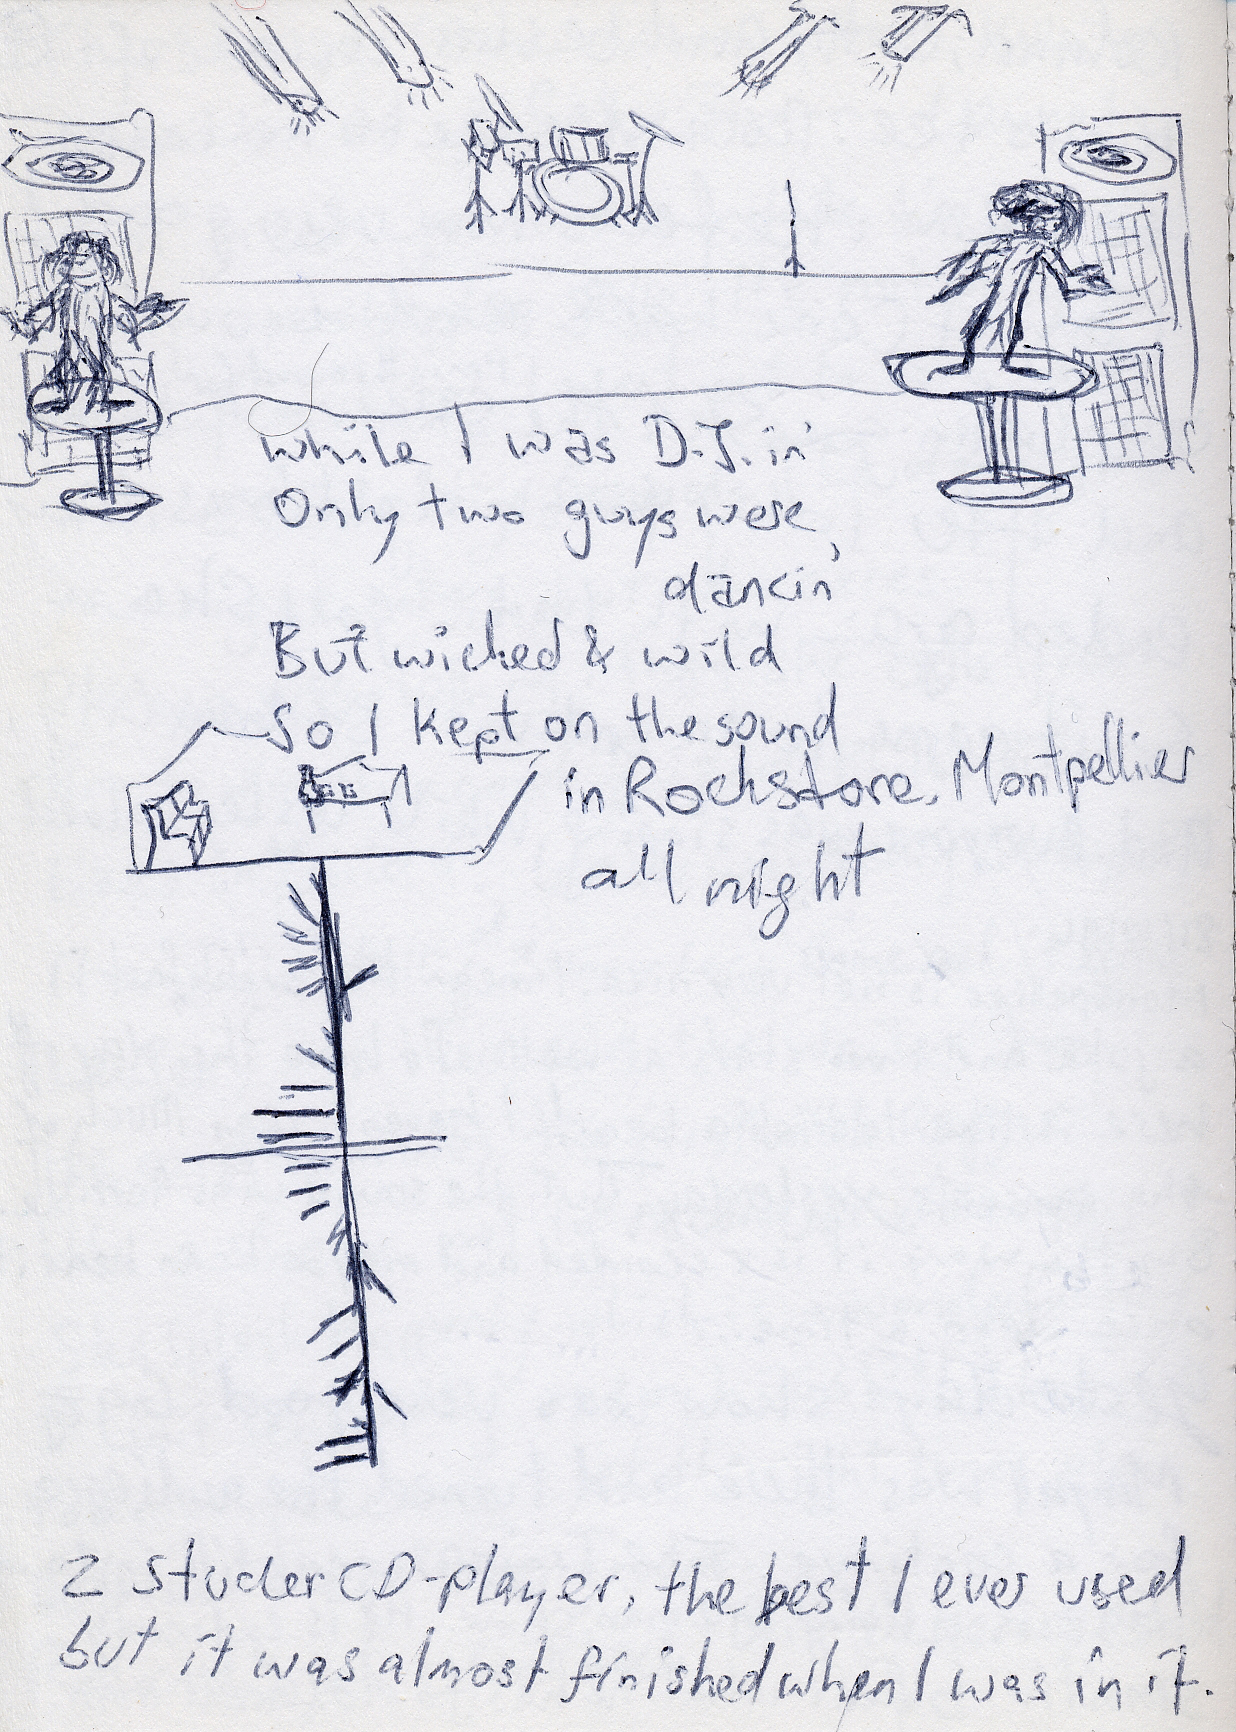 while I was D.J.in'
Only two guys were
dancin'
But wicked & wild
So I kept on the sound
in Rockstore, Montpellier
all night
2 Studer CD-player, the best I ever used
but it was almost finished when I was in it.